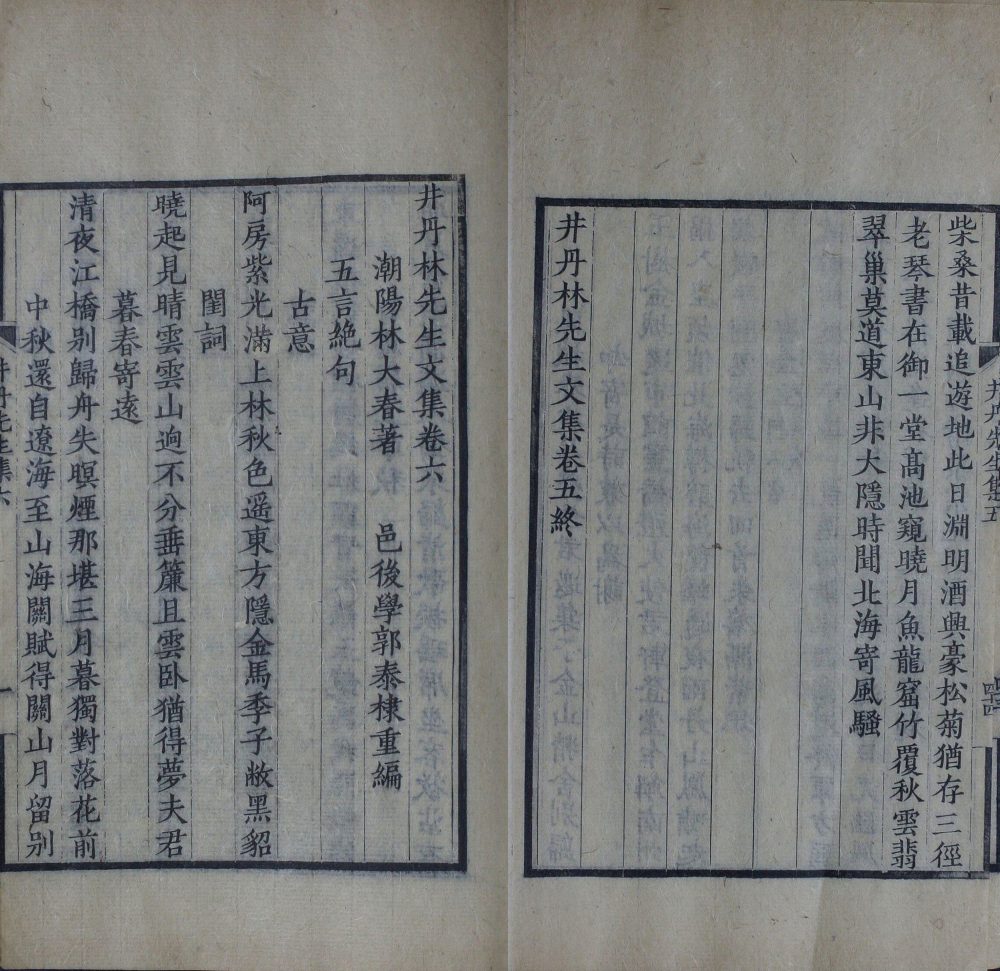 柴桑昔載追遊地此日淵明酒興豪松菊猶存三徑
老琴書在御一堂高池窺曉月魚龍窟竹覆秋雲翡
翠巢莫道東山非大隱時聞北海寄風騷
井丹林先生文集卷五終
井丹林先生文集卷六
潮陽林大春著 邑後學郭泰棣重編
五言絶句
古意
阿房紫光滿上林秋色遥東方隱金馬季子敝黑貂
閨詞
曉起見晴雲雲山逈不分垂簾且雲卧猶得夢夫君
暮春寄遠
清夜江橋别歸舟失暝煙那堪三月暮獨對落花前
中秋還自遼海至山海關賦得關山月留别